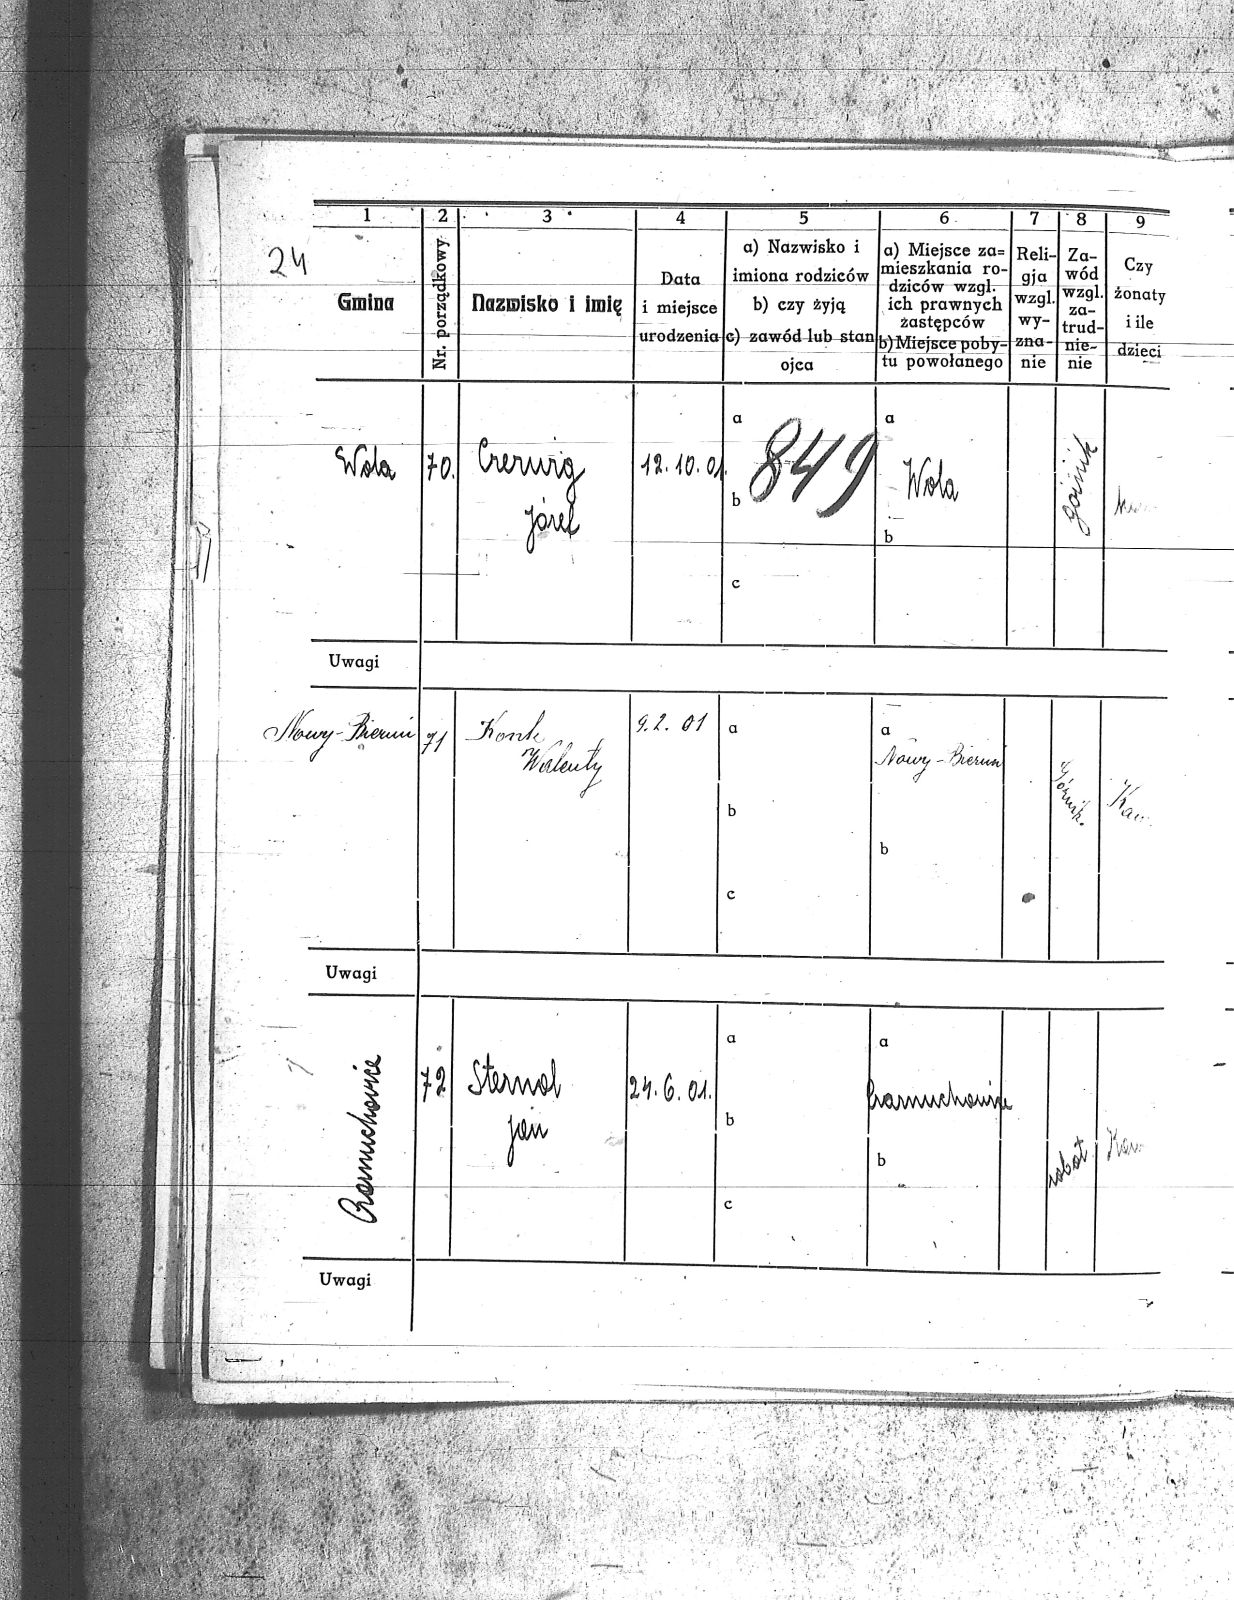 24
1 2 3 4 5 6 7 8 9
Gmina
Nr. porządkowy
Nazwisko i imię
Data
i miejsce
urodzenia
a) Nazwisko i
imiona rodziców
b) czy żyją
c) zawód lub stan
ojca
a) Miejsce za=
mieszkania ro-
dziców wzgl.
ich prawnych
zastępców
b) Miejsce poby-
tu powołanego
Reli-
gja
wzgl.
wy-
zna-
nie
Za-
wód
wzgl.
za-
trud-
nie-
nie
Czy
żonaty
i ile
dzieci
Wola
70.
Józef
12.10.01.
a
849
b
c
a
Wola
b
Uwagi
Nowy-Bieruń
71
Walenty
9.2.01
a
b
c
a
Nowy-Bieruń
b
Górnik.
Kaw.
Uwagi
Czarnuchowice
72
Sternal
Jan
24.6.01.
a
b
c
a
Czarnuchowice
b
robot
Kaw
Uwagi